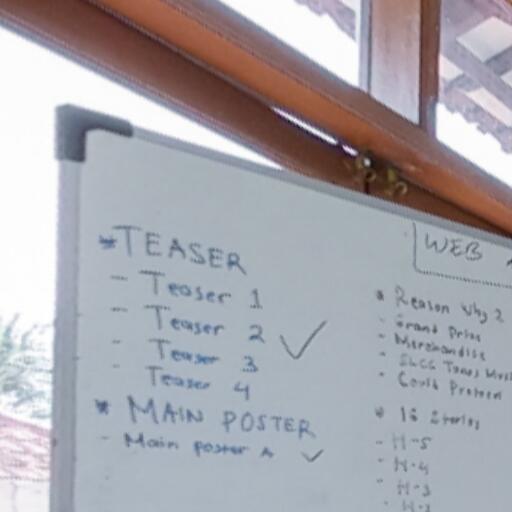 * TEASER
- Teaser 1
- Teaser 2
- Teaser 3
- Teaser 4
* MAIN POSTER
- Main poster A
WEB
* Reason Why 2
- Grand Prize
- Merchandise
- Covid Protocol
* 16 Stories
- H-5
- H-4
- H-3